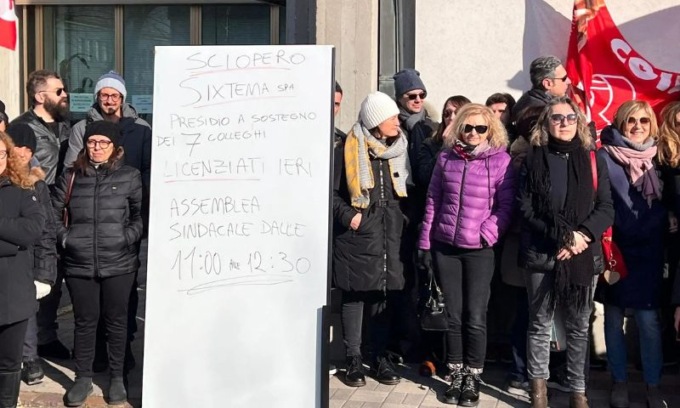 SCIOPERO
SIXTEMA SPA
PRESIDIO A SOSTEGNO
DEI 7 COLLEGHI
LICENZIATI IERI
ASSEMBLEA
SINDACALE DALLE
11:00 ALLE 12:30